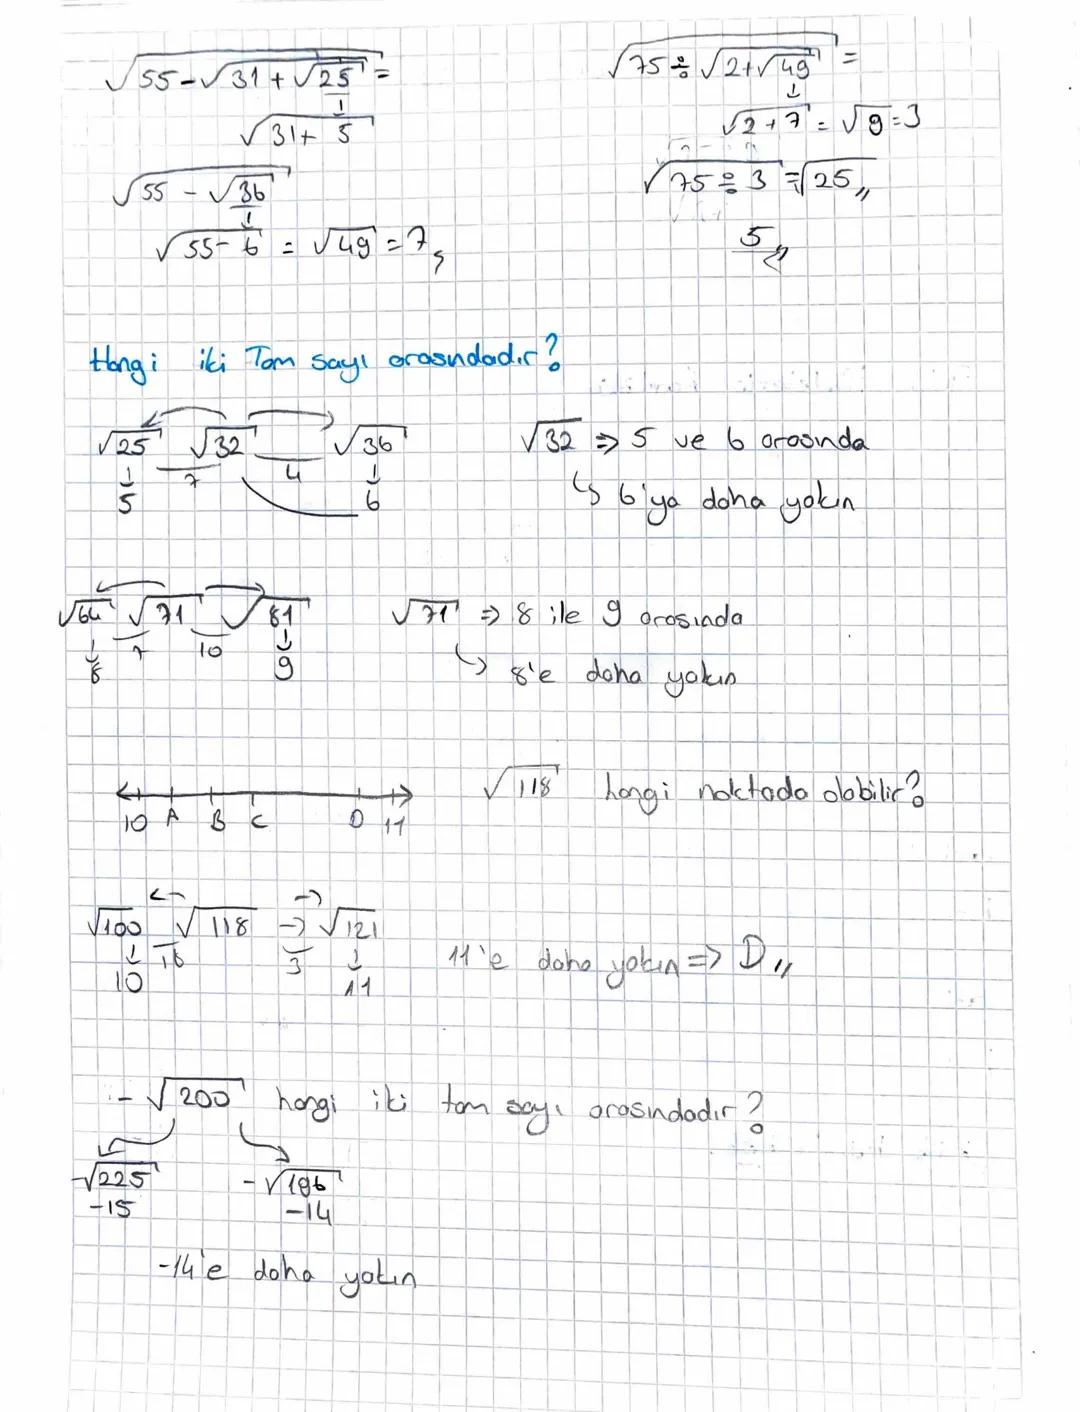 √55-√31+√25 =
↓
√31+ 5
√55 - √36
↓
√55- 6 = √49 = 7,
√75÷√2+√49 =
↓
√2+7 = √9=3
√75÷3 =√25,,
5,,
Hangi iki Tam sayı arasındadır?
√25 √32 √36
↓ 7 4 ↓
5 6
√32 ⇒ 5 ve 6 arasında
↳ 6'ya daha yakın
√64 √71 √81
↓ 7 10 ↓
8 9
√71 ⇒ 8 ile 9 arasında
↳ 8'e daha yakın
10 A B C D 11
√118 hangi noktada olabilir?
√100 √118 → √121
↓ 16 3 ↓
10 11
11'e daha yakın => D,,
-√200 hangi iki tam sayı arasındadır?
-√225 -√196
-15 -14
-14'e daha yakın